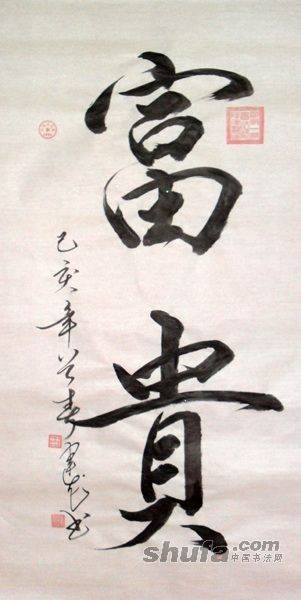 富貴
己亥年春书
shufa.com
中国书法网